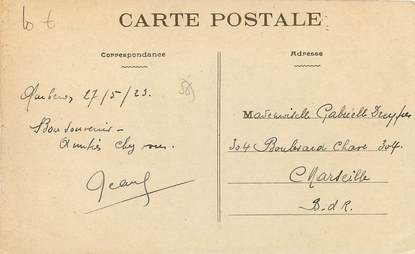 CARTE POSTALE
Correspondance
Adresse
27/5/23.
Bon souvenir -
Amitiés chez vous.
Jean
Mademoiselle Gabrielle Dreyfus
304 Boulevard Chave 304
Marseille
B.d.R.